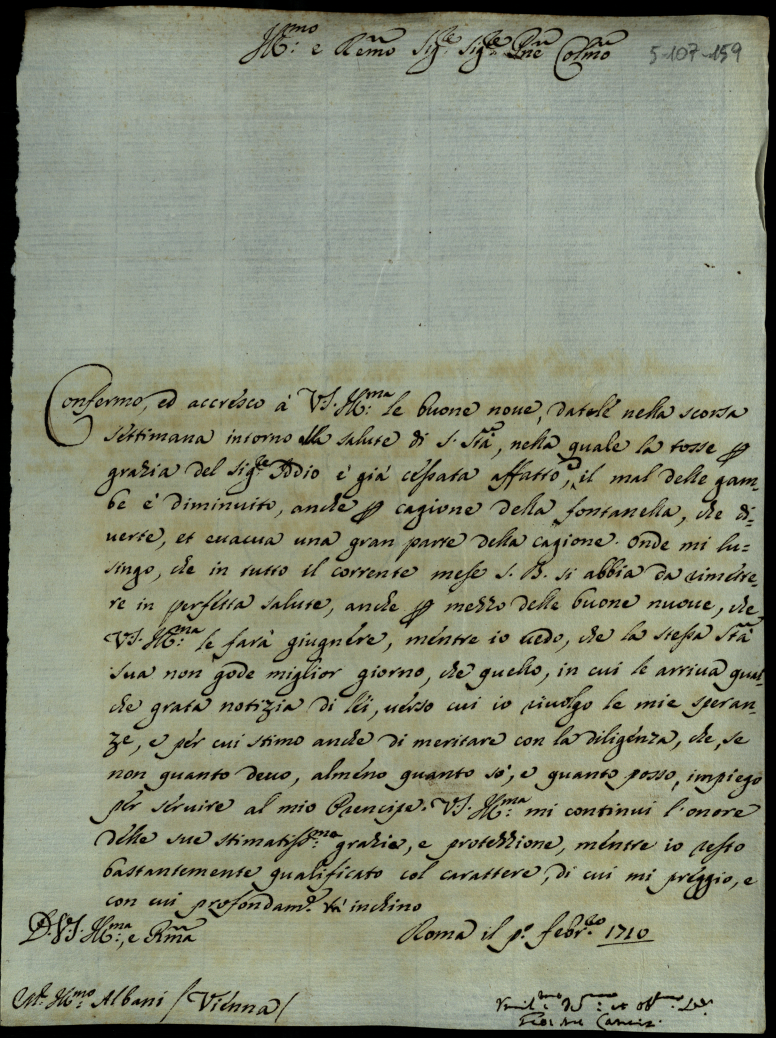 Ill.mo e R.emo Sig.re Sig.re P.ne Col.mo
5-107-159
Confermo, ed accresco à V.S. Ill.ma le buone noue, datele nella scorsa
settimana intorno alla salute di S. S.tà, nella quale la tosse p
grazia del Sig.re Iddio è già cessata affatto, il mal delle gam=
be è diminuito, anche p cagione della fontanella, che di=
uerte, et euacua una gran parte della cagione. Onde mi lu=
singo, che in tutto il corrente mese S. B. si abbia da rimette=
re in perfetta salute, anche p mezzo delle buone nuoue, che
V.S. Ill.ma le farà giugnere, mentre io uedo, che la stessa S.tà
sua non gode miglior giorno, che quello, in cui le arriua qual
che grata notizia di lei, uerso cui io riuolgo le mie speran=
ze, e per cui stimo anche di meritare con la diligenza, che, se
non quanto deuo, almeno quanto sò, e quanto posso, impiego
per seruire al mio Prencipe. V.S. Ill.ma mi continui l'onore
delle sue stimatiss.me grazie, e protezzione, mentre io resto
bastantemente qualificato col carattere, di cui mi preggio, e
con cui profondam.te inchino
D. V.S. Ill.ma, e R.ma Roma il p.o febr.o 1710
M.r Ill.mo Albani / Vienna /